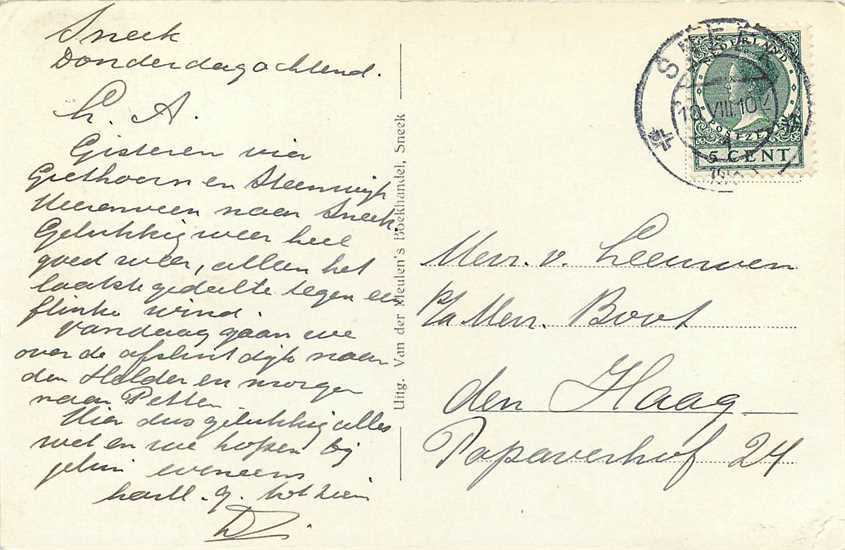 Sneek
Donderdagochtend.
L. A.
Gisteren via
Giethoorn en Steenwijk
Heerenveen naar Sneek.
Gelukkig weer heel
goed weer, alleen het
laatste gedeelte tegen een
flinke wind.
Vandaag gaan we
over de afsluitdijk naar
den Helder en morgen
naar Petten
Hier dus gelukkig alles
wel en we hopen bij
jelui eveneens
hartl. g. tot ziens
Uitg. Van der Meulen's Boekhandel, Sneek
SNEEK
10 VIII 10
NEDERLAND
5 CENT
Mevr. v. Leeuwen
p/a Mevr. Boot
den Haag
Papaverhof 24